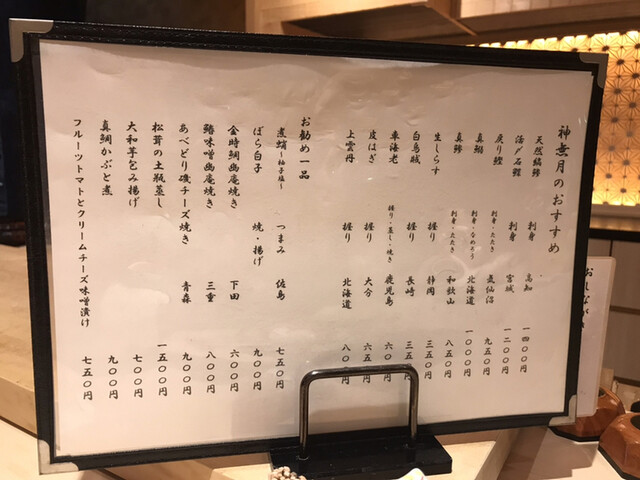 神無月のおすすめ
天然縞鯵 刺身 高知 一四〇〇円
活〆石鰈 刺身 宮城 一二〇〇円
戻り鰹 刺身・たたき 気仙沼 九五〇円
真鯛 北海道 一〇〇〇円
真鯵 刺身・たたき 和歌山 八五〇円
生しらす 握り 静岡 三五〇円
白烏賊 握り 長崎 三五〇円
車海老 握り・蒸し・焼き 鹿児島 六〇〇円
皮はぎ 握り 大分 六五〇円
上雲丹 握り 北海道 八〇〇円
お勧め一品
煮蛸～柚子塩～ つまみ 佐島 七五〇円
ぼら白子 焼・揚げ 九〇〇円
金時鯛幽庵焼き 下田 六〇〇円
味噌幽庵焼き 三重 八〇〇円
あべどり磯チーズ焼き 青森 九〇〇円
松茸の土瓶蒸し 一五〇〇円
大和芋包み揚げ 七〇〇円
真鯛かぶと煮 九〇〇円
フルーツトマトとクリームチーズ味噌漬け 七五〇円
おしながき